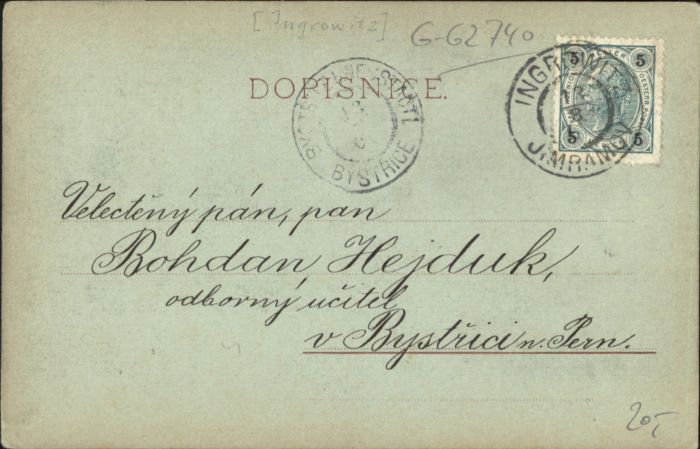 [Ingrowitz]
G-G2740
DOPISNICE.
INGROWITZ
JIMRAMOV
5 5
5 5
BYSTŘICE
Velectěný pán, pan
Bohdan Hejduk,
odborný učitel
v Bystřici n. Pern.
20,-